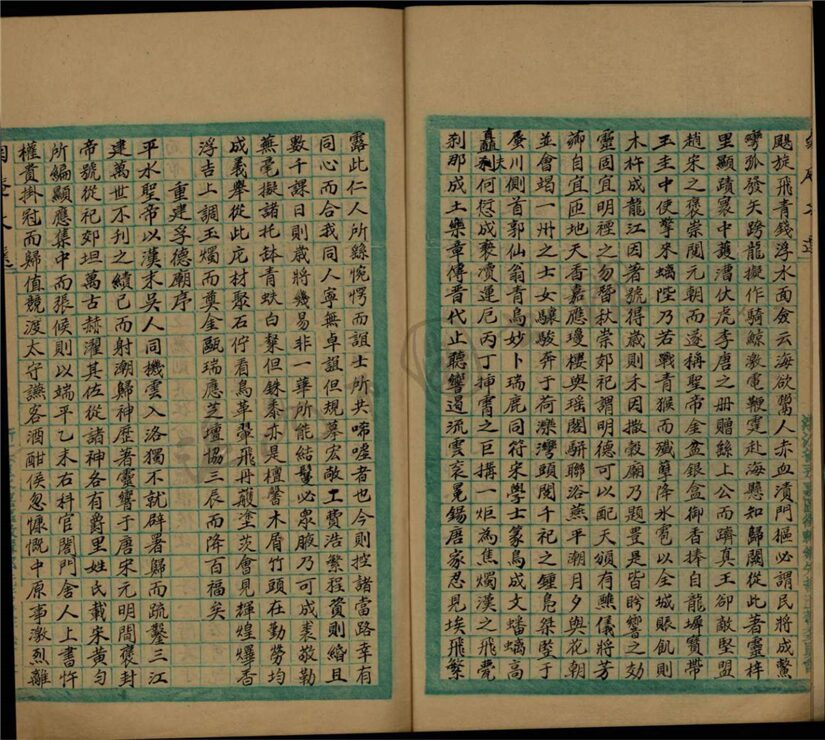 颶旋飛青錢浮水面僉云海欲嚙人赤血漬門樞必謂民將成鱉
彎弧發矢跨龍擬作騎鯨激電鞭霆赴海懸知歸闕從此著靈梓
里顯蹟寰中護漕伏虎李唐之冊贈繇上公而躋真王卻敵堅盟
趙宋之褒崇閱元朝而遂稱聖帝金盆銀盒御香捧自龍墀寶帶
玉圭中使擎來螭陛乃若戰青猴而殲孽降水雹以全城賑飢則
木杵成龍江因著號得歲則禾因撒穀廟乃題豐是皆盻響之効
靈固宜明禋之勿替狄崇郊祀謂明德可以配天頒有熊儀將芳
薌自宜匝地天香嘉應瓊樓與瑶閣駢聯浴燕平潮月夕與花朝
並會竭一州之士女驤駿奔于荷濼灣頭閱千祀之鍾鳧桀堅于
蜃川側首郭仙翁青烏妙卜瑞鹿同符宋學士篆鳥成文蟠螭高
矗夫何愆成褻瀆運厄丙丁挿霄之巨搆一炬為焦燭漢之飛甍
刹那成土樂章傳晉代止聽響遏流雲袞冕錫唐家忍見埃飛繁
露此仁人所繇惋愕而誼士所共唏噓者也今則控諸當路幸有
同心而合我同人寧無卓誼但規摹宏敞工費浩繁程資則緡且
數千課日則歲將幾易非一華所能結鬘必衆腋乃可成裘敬勒
蕪毫擬諸托缽青蚨白粲但銖黍亦是檀醫木屑竹頭在勤勞均
成義舉從此庀材聚石佇看鳥革翬飛丹雘塗茨會見輝煌爗香
浮吉上調玉燭而奠金甌瑞應芝壇協三辰而降百福矣
重建孚德廟序
平水聖帝以漢末吳人同機雲入洛獨不就辟署歸而疏鑿三江
建萬世不刋之績已而射潮歸神歷著靈響于唐宋元明間褒封
帝號從祀郊坦萬古赫濯其佐從諸神各有爵里姓氏載宋黃勻
所編顯應集中而張侯則以端平乙未右科官閤門舍人上書忤
權貴掛冠而歸值競渡太守讌客酒酣侯忽慷慨中原事激烈離